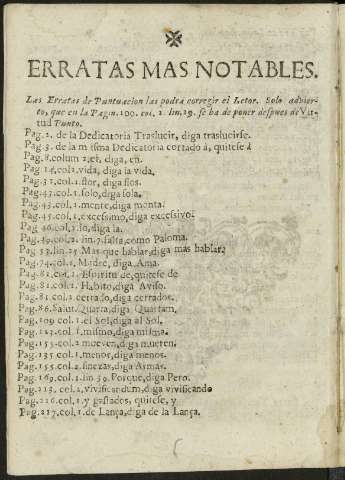 ERRATAS MAS NOTABLES.
Las Erratas de Puntuacion las podrà corregir el Letor. Solo advier-
to, que en la Pagin. 100. col. 2. lin. 29. se ha de poner despues de Vir-
tud Punto.
Pag. 2. de la Dedicatoria Traslucir, diga traslucirse.
Pag. 3. de la misma Dedicatoria cortado à, quitese à
Pag. 8. colum 2. et, diga, en.
Pag 14. col 2. vida, diga la vida.
Pag. 31. col. 1. flor, diga flos.
Pag. 43. col. 1. solo, diga sola.
Pag. 43. col. 1. mente, diga menta.
Pag. 45. col. 1. excessimo, diga excessivo.
Pag 46. col. 1. lo, diga la.
Pag. 49. col. 2. lin. 7. falta, como Paloma.
Pag. 53. lin. 25 Mas que hablar, diga mas hablar.
Pag. 74. col. 1. Madre, diga Ama.
Pag. 81. col. 1. Espiritu de, quitese de
Pag. 81. col. 1. Habito, diga Aviso.
Pag. 81. col. 2 cerrado, diga cerrados.
Pag. 86. Salut. Quarta, diga Quartam,
Pag. 109 col. 1. el Sol, diga al Sol.
Pag. 123. col. 1. mismo, diga misma.
Pag. 153. col. 2 mueven, diga mueren.
Pag. 135 col. 1. menor, diga menos.
Pag. 155. col. 2. finezas, diga Armas.
Pag. 169. col. 1. lin 39. Porque, diga Pero.
Pag. 213. col. 2. vivificandum, diga vivificando
Pag. 216. col. 1. y gastados, quitese, y
Pag. 217. col. 1. de Lança, diga de la Lança.